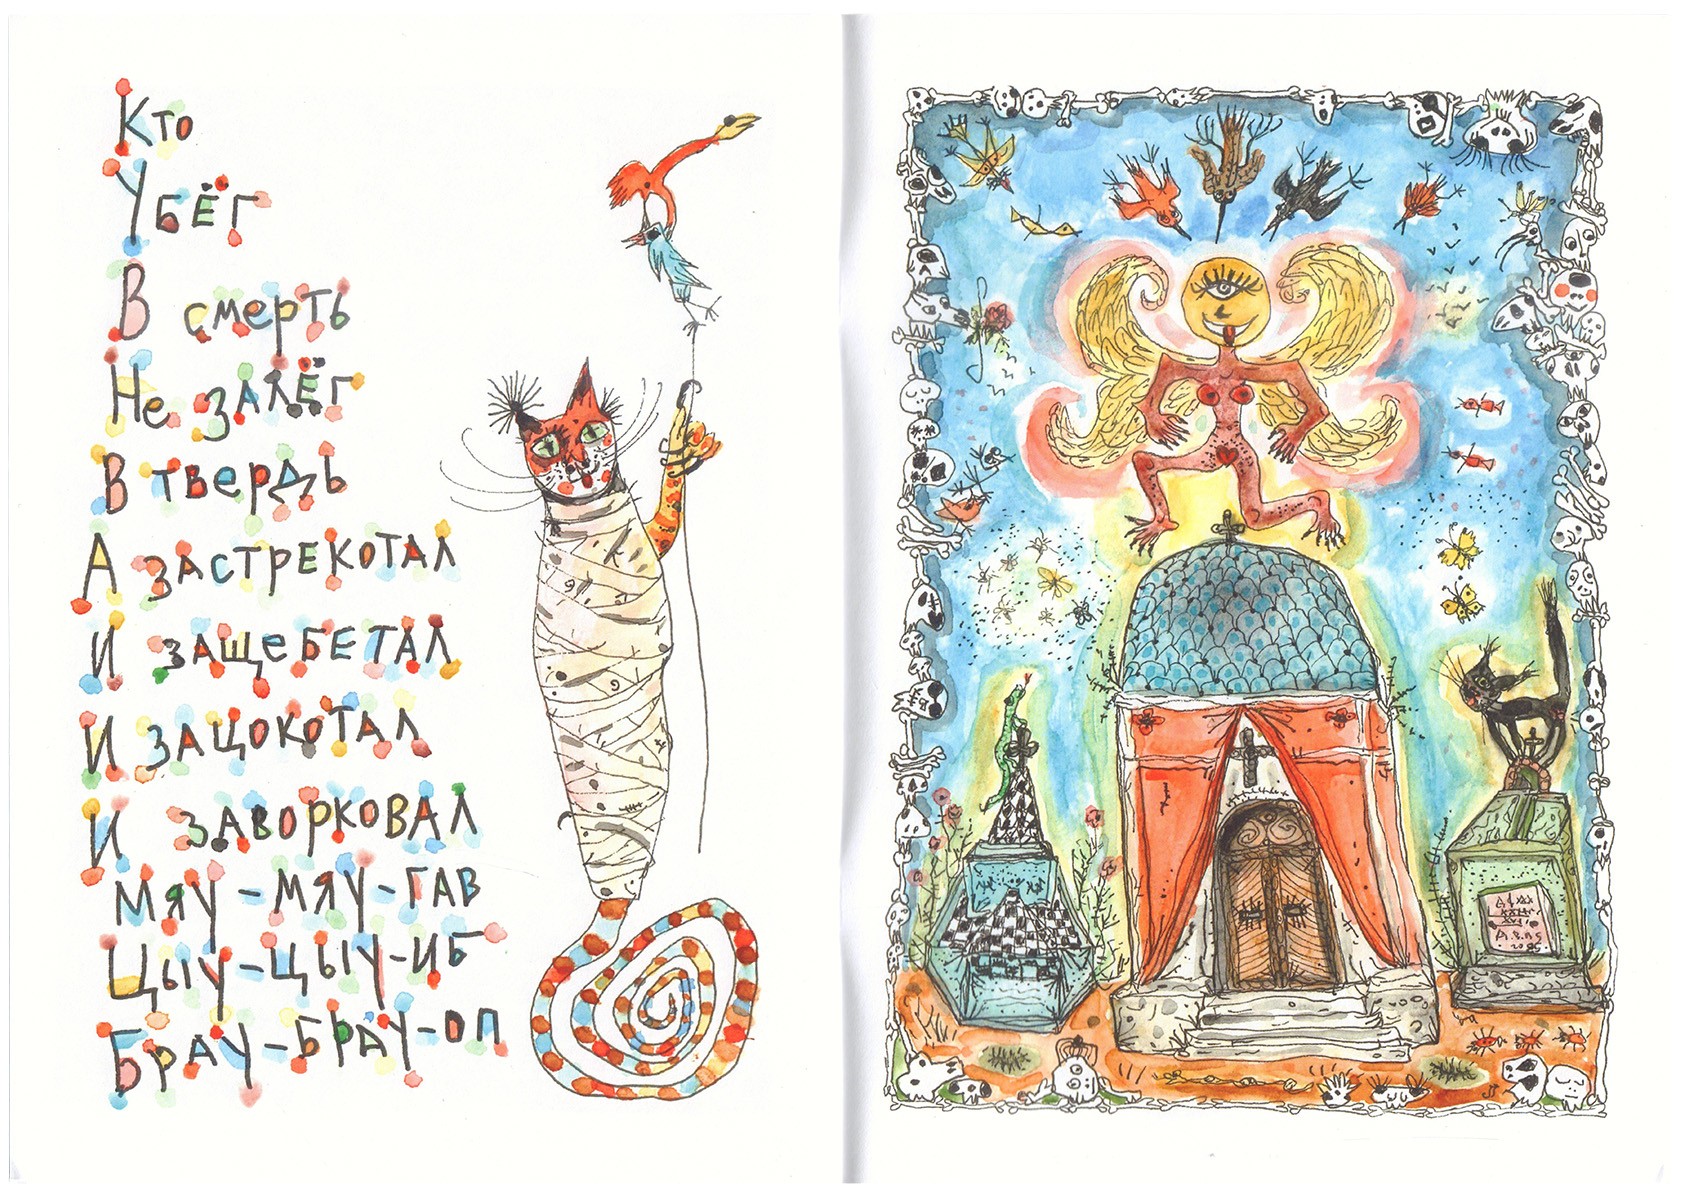 Кто
Убёг
В смерть
Не залёг
В твердь
А застрекотал
И защебетал
И зацокотал
И заворковал
Мяу-мяу-гав
Цыу-цыу-иб
Брау-брау-оп